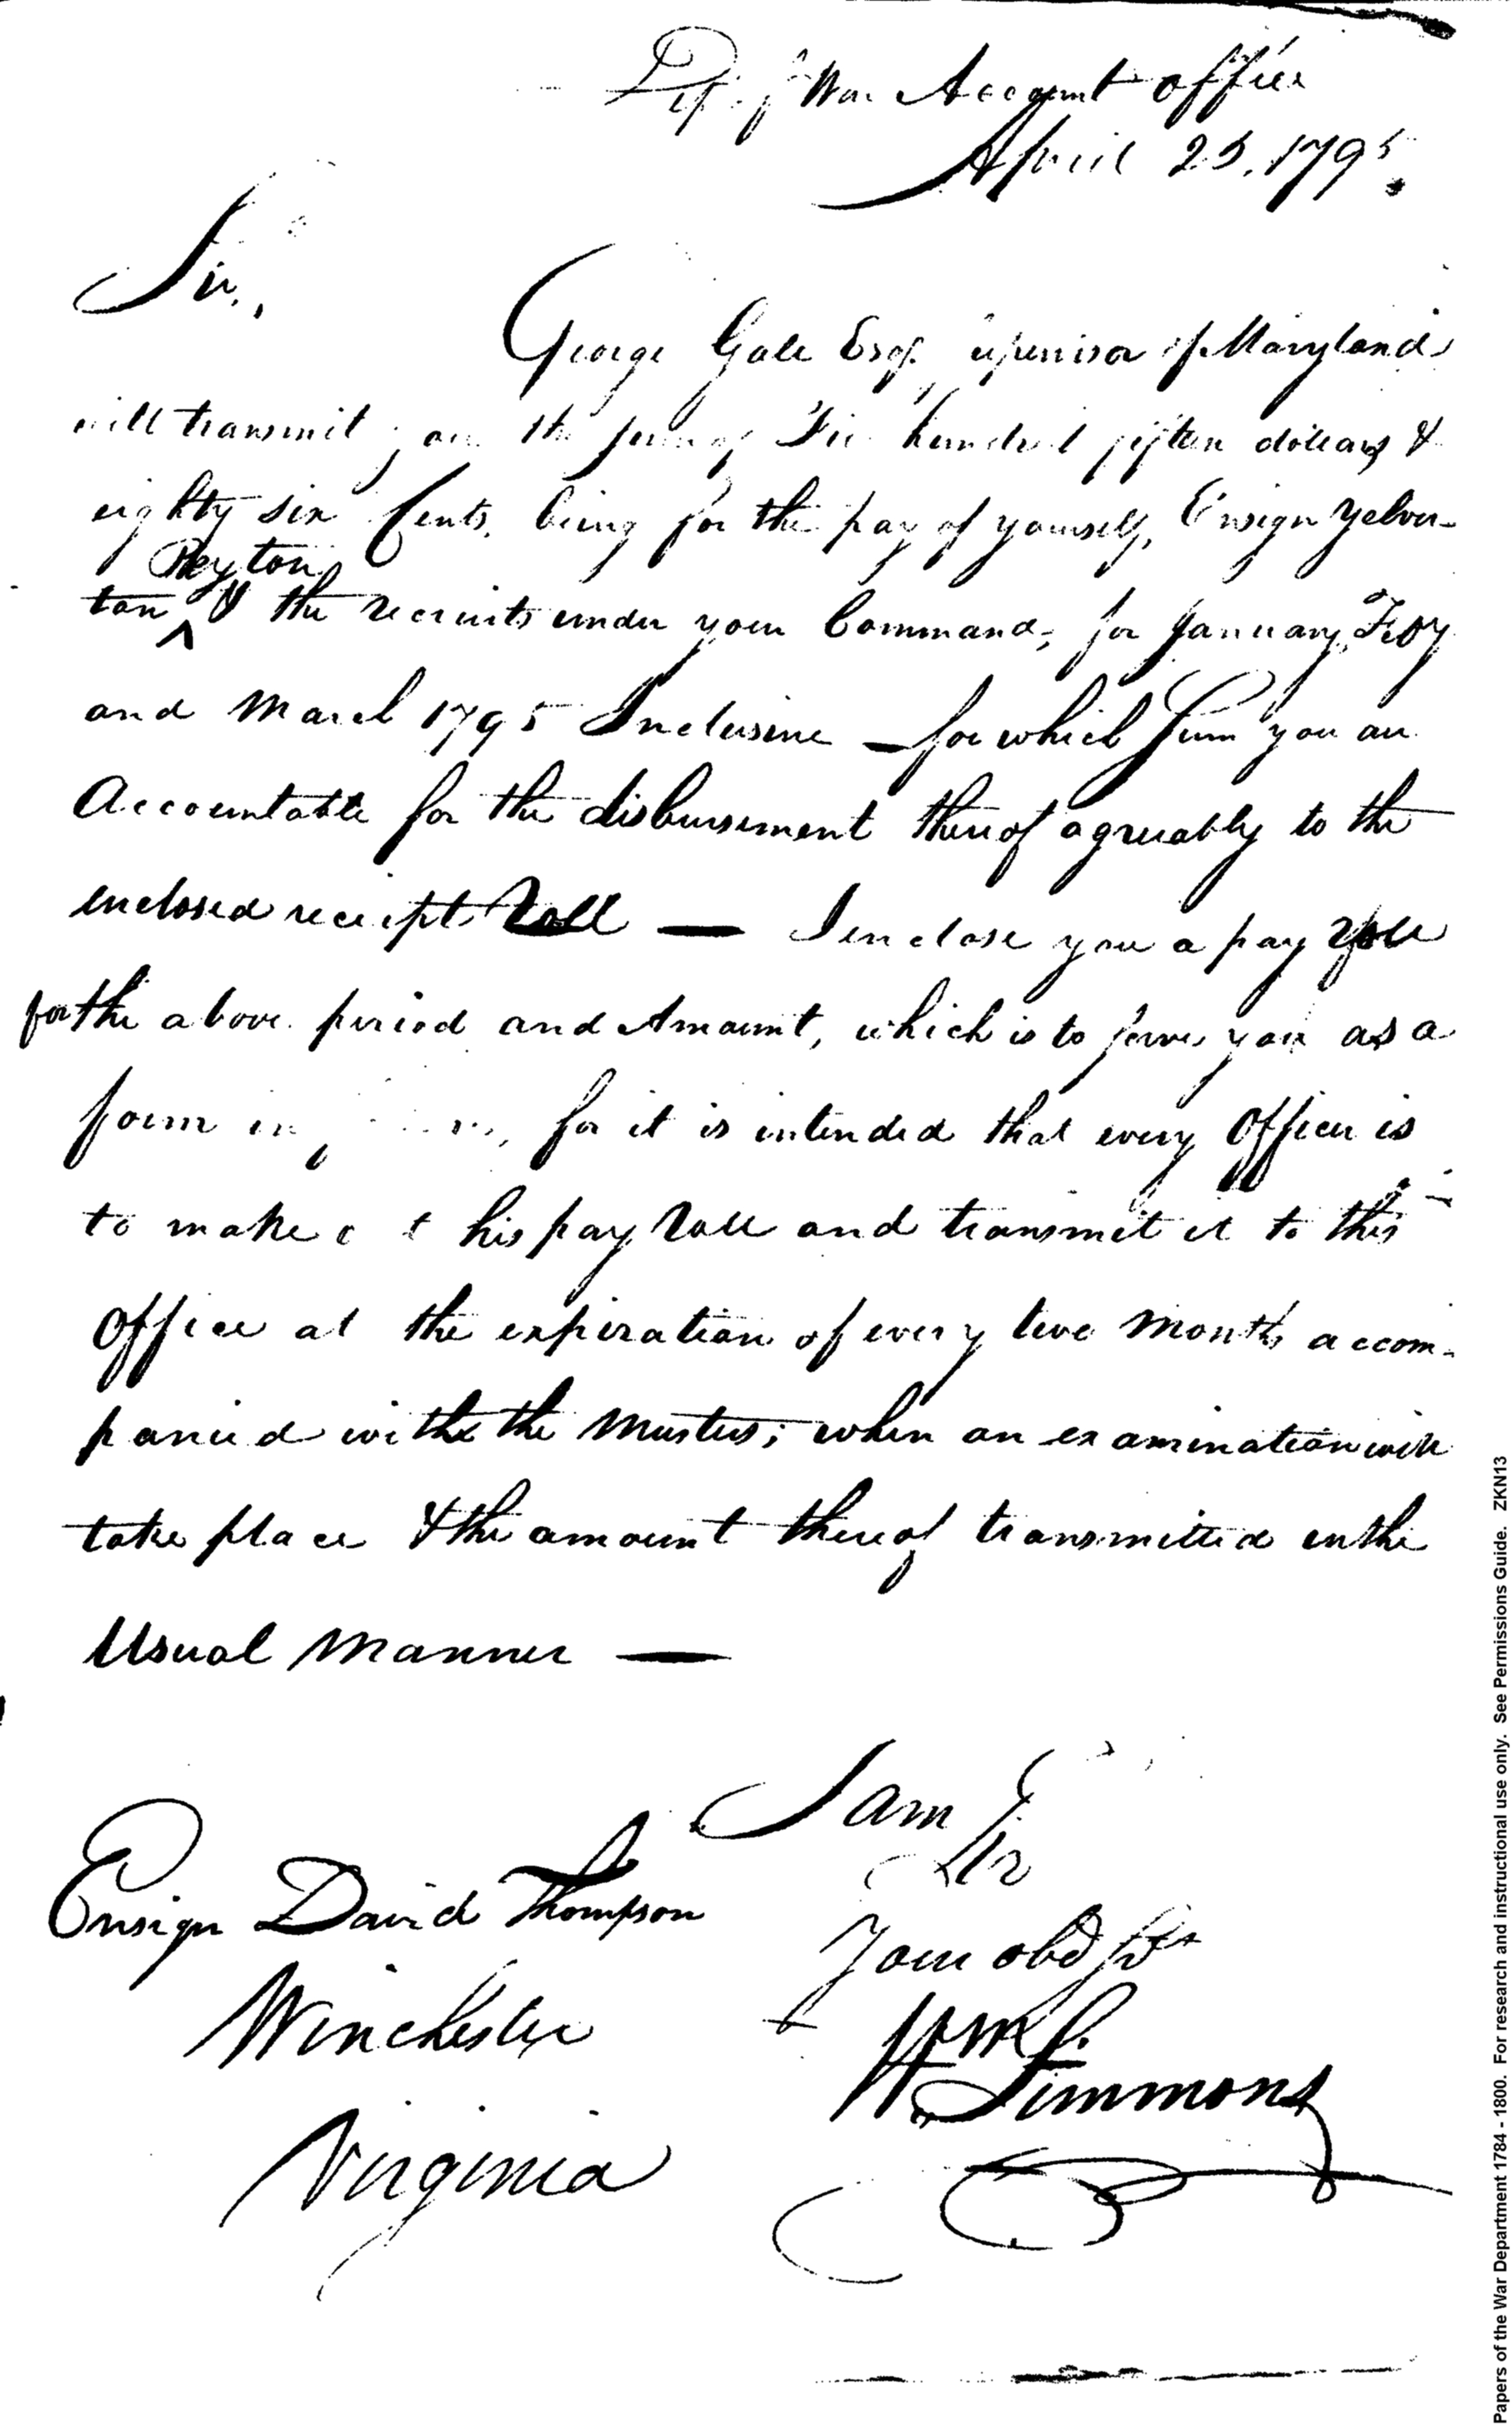 Dep. of War Account office
April 25. 1795.
Sir,
George Gale Esqr. supervisor of Maryland
will transmit you the sum of hundred fifteen dollars &
eighty six Cents, being for the pay of yourself, Ensign Yelver-
Peyton
ton ^ & the recruits under your Command, for January, Feby
and March 1795 Inclusive — for which sum you are
Accountable for the disbursement thereof agreeably to the
enclosed receipt Roll — I enclose you a pay Roll
for the above period and Amount, which is to serve you as a
form in for it is intended that every Officer is
to make out his pay Roll and transmit it to this
Office at the expiration of every two Months accom-
panied with the Musters; when an examination will
take place & the amount thereof transmitted in the
Usual Manner —
I am
Sir
Your obd Svt
Wm Simmons
Ensign David Thompson
Winchester
Virginia
Papers of the War Department 1784 - 1800. For research and instructional use only. See Permissions Guide. ZKN13